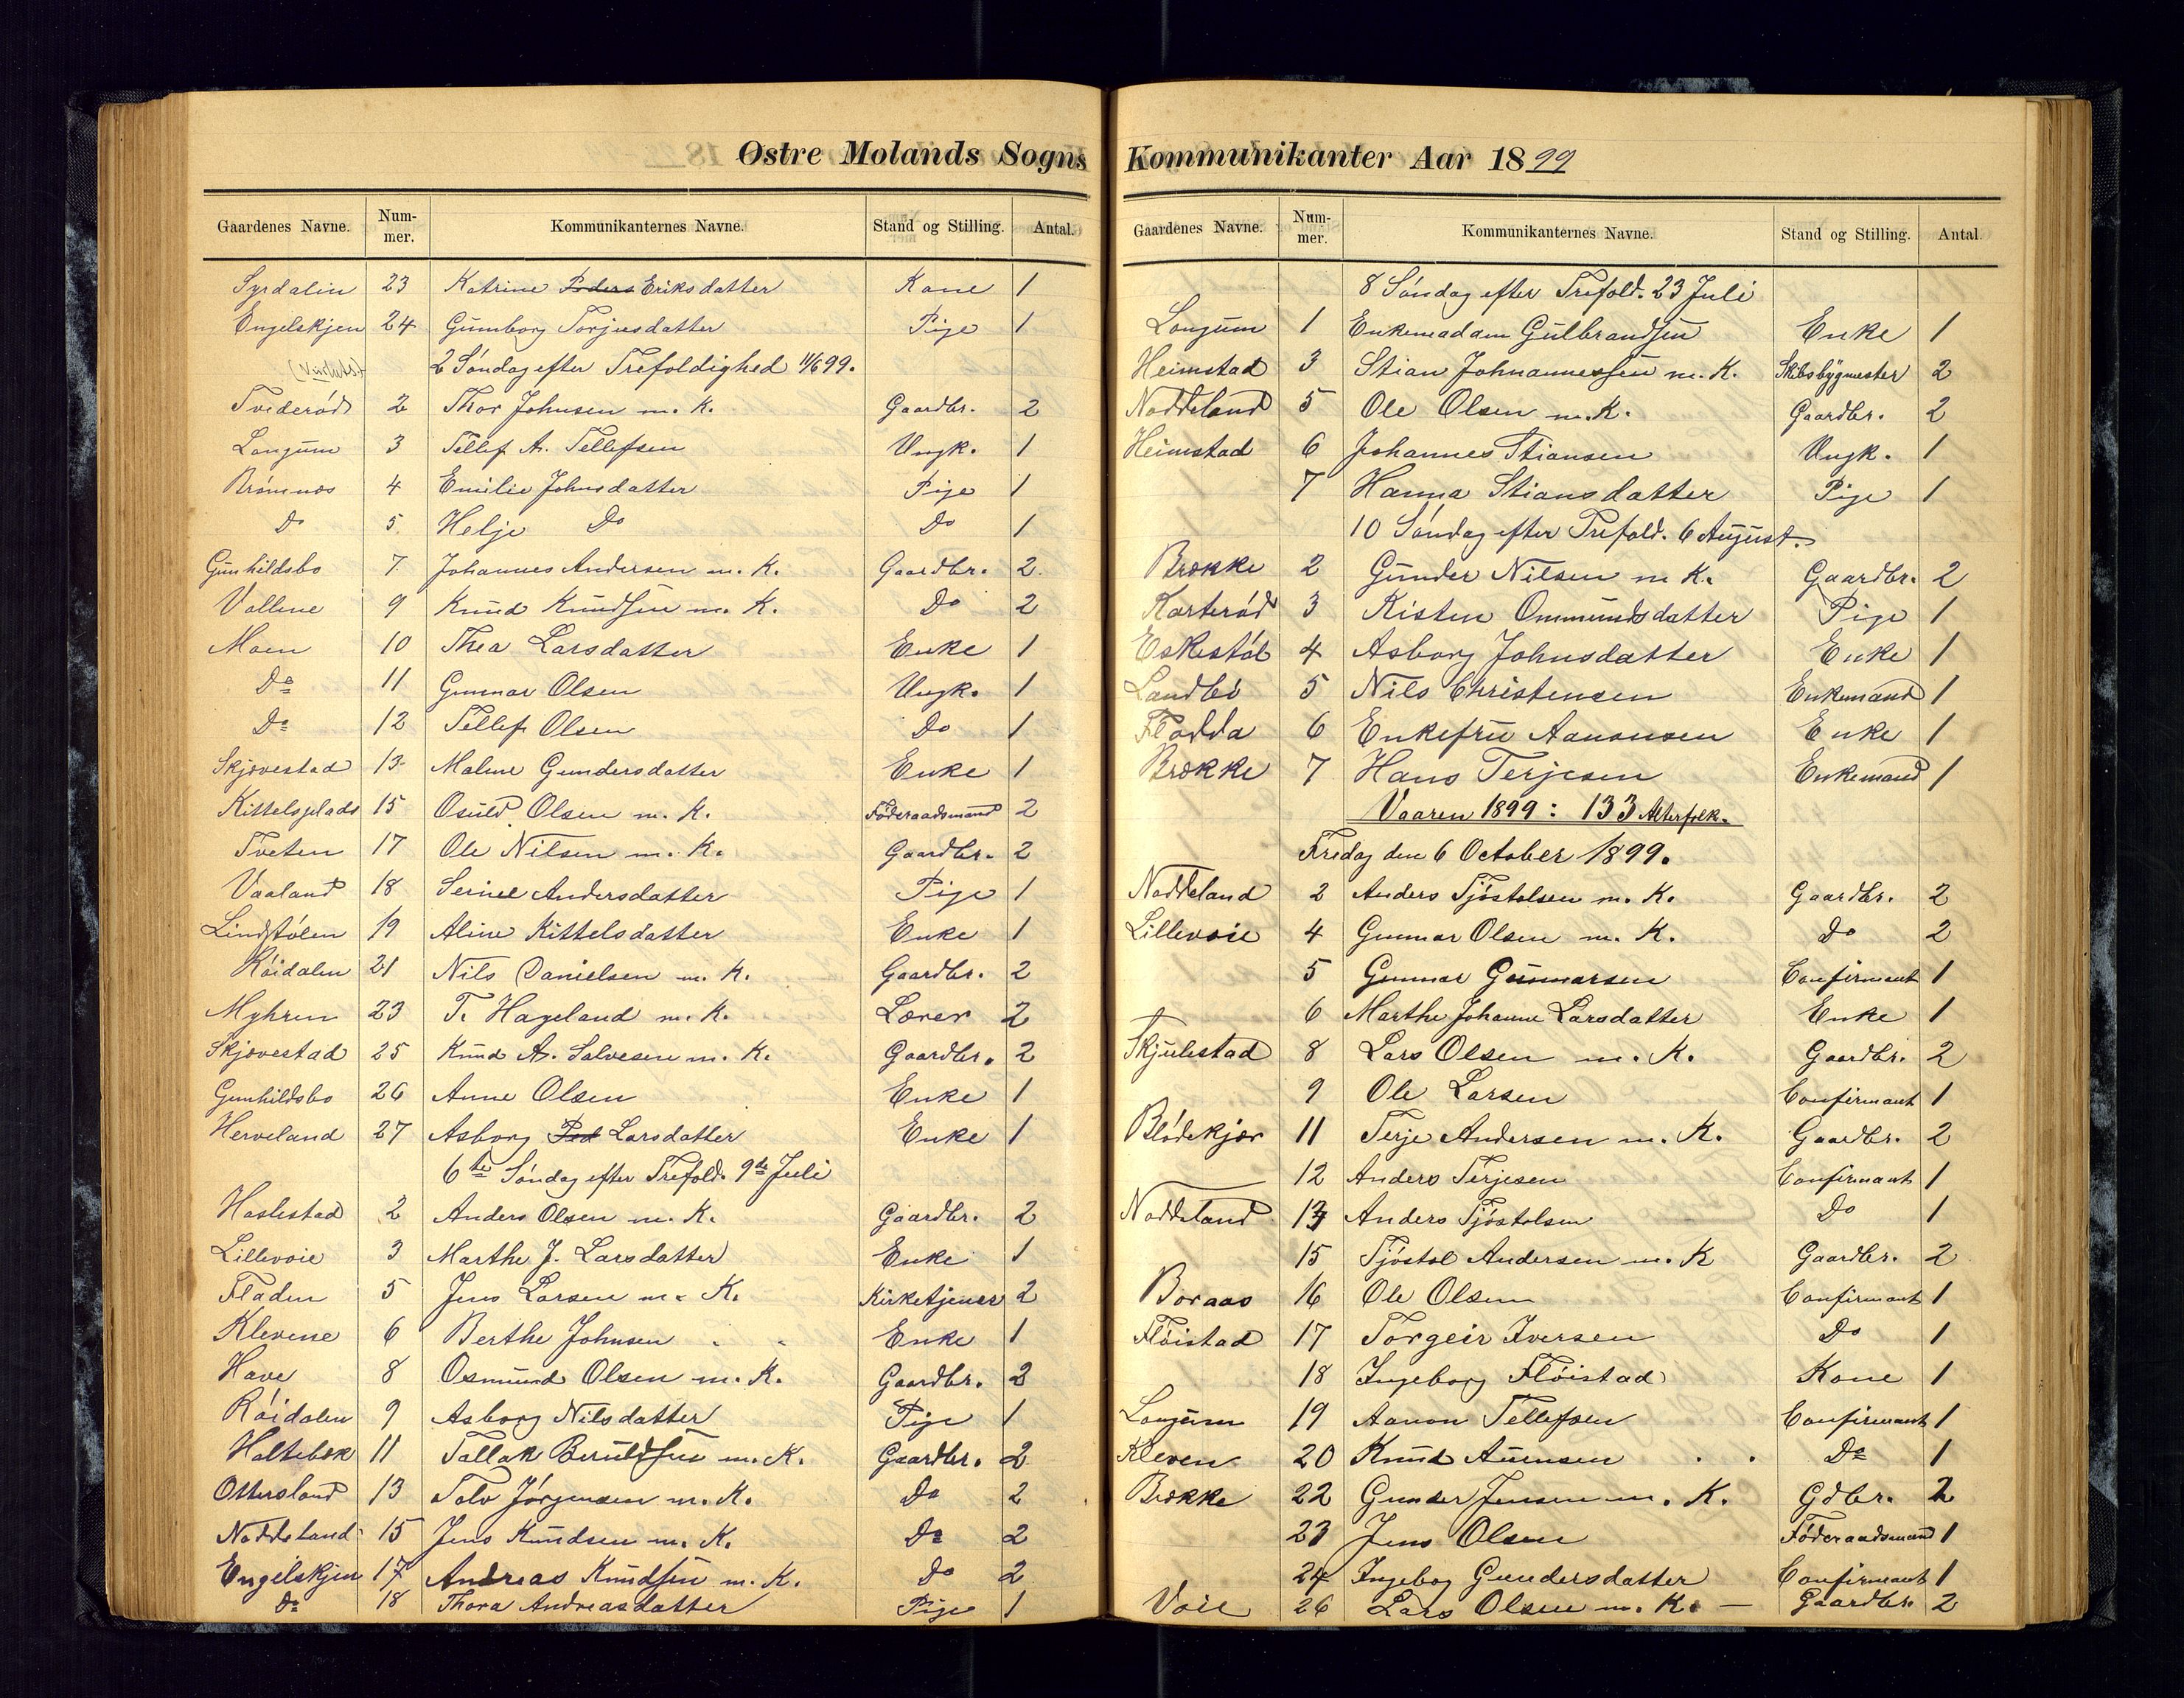 Østre Molands Sogns
Gaardenes Navne. Nummer. Kommunikanternes Navne. Stand og Stilling. Antal.
Syrdalin 23 Katrine Peders Eriksdatter Kone 1
Engelskjen 24 Gunborg Torjusdatter Pige 1
2 Søndag efter Trefoldighed 11/6 99.
Tviderød 2 Thor Johnsen m. K. Gaardbr. 2
Longum 3 Tellef A. Tellefsen Ungk. 1
Brømnes 4 Emilie Johnsdatter Pige 1
Do 5 Helje Do Do 1
Gunhildsbo 7 Johannes Andersen m. K. Gaardbr. 2
Vollene 9 Knud Knudsen m. K. Do 2
Moen 10 Thea Larsdatter Enke 1
Do 11 Gunnar Olsen Ungk. 1
Do 12 Tellef Olsen Do 1
Skjævestad 13 Malene Gundersdatter Enke 1
Kittelsplads 15 Osuld Olsen m. K. Føderaadsmand 2
Tveten 17 Ole Nilsen m. K. Gaardbr. 2
Vaaland 18 Serine Andersdatter Pige 1
Lindstølen 19 Aline Kittelsdatter Enke 1
Røidalen 21 Nils Danielsen m. K. Gaardbr. 2
Myhren 23 T. Hageland m. K. Lærer 2
Skjævestad 25 Knud A. Salvesen m. K. Gaardbr. 2
Gunhildsbo 26 Anne Olsen Enke 1
Herveland 27 Asborg Ped Larsdatter Enke 1
6te Søndag efter Trefold. 9de Juli
Haslestad 2 Anders Olsen m. K. Gaardbr. 2
Lillevoie 3 Marthe J. Larsdatter Enke 1
Fladen 5 Jens Larsen m. K. Kirketjener 2
Klevene 6 Berthe Johnsen Enke 1
Have 8 Osmund Olsen m. K. Gaardbr. 2
Røidalen 9 Asborg Nilsdatter Pige 1
Holtebæk 11 Tallak Beruldsen m. K. Gaardbr. 2
Ottersland 13 Talv Jørgensen m. K. Do 2
Noddeland 15 Jens Knudsen m. K. Do 2
Engelskjen 17 Andreas Knudsen m. K. Do 2
Do 18 Thora Andreasdatter Pige 1
Kommunikanter Aar 1899
Gaardenes Navne. Nummer. Kommunikanternes Navne. Stand og Stilling. Antal.
8 Søndag efter Trefold. 23 Juli
Longum 1 Enkemadam Gulbrandsen Enke 1
Heimstad 3 Stian Johannessen m. K. Skibsbygmester 2
Noddeland 5 Ole Olsen m. K. Gaardbr. 2
Heimstad 6 Johannes Stiansen Ungk. 1
7 Hanna Stiansdatter Pige 1
10 Søndag efter Trefold. 6 August.
Brække 2 Gunder Nilsen m K. Gaardbr. 2
Karterød 3 Kisten Ommundsdatter Pige 1
Eskestøl 4 Asborg Johnsdatter Enke 1
Landbö 5 Nils Christensen Enkemand 1
Flodda 6 Enkefru Aanonsen Enke 1
Brække 7 Hans Terjesen Enkemand 1
Vaaren 1899: 133 Alterfolk.
Fredag den 6 October 1899.
Noddeland 2 Anders Tjøstolsen m. K. Gaardbr. 2
Lillevoie 4 Gunnar Olsen m. K. Do 2
5 Gunnar Gunnarsen Confirmant 1
6 Marthe Johanne Larsdatter Enke 1
Skjulestad 8 Lars Olsen m. K. Gaardbr. 2
9 Ole Larsen Confirmant 1
Blødekjær 11 Terje Andersen m. K. Gaardbr. 2
12 Anders Terjesen Confirmant 1
Noddeland 13 Anders Tjøstolsen Do 1
15 Tjøstol Andersen m. K Gaardbr. 2
Boraas 16 Ole Olsen Confirmant 1
Fløistad 17 Torgeir Iversen Do 1
18 Ingeborg Fløistad Kone 1
Longum 19 Aanon Tellefsen Confirmant 1
Kleven 20 Knud Auensen Do 1
Brække 22 Gunder Jensen m. K. Gdbr. 2
23 Jens Olsen Føderaadsmand 1
24 Ingebog Gundersdatter Confirmant 1
Voie 26 Lars Olsen m. K. — Gaardbr. 2